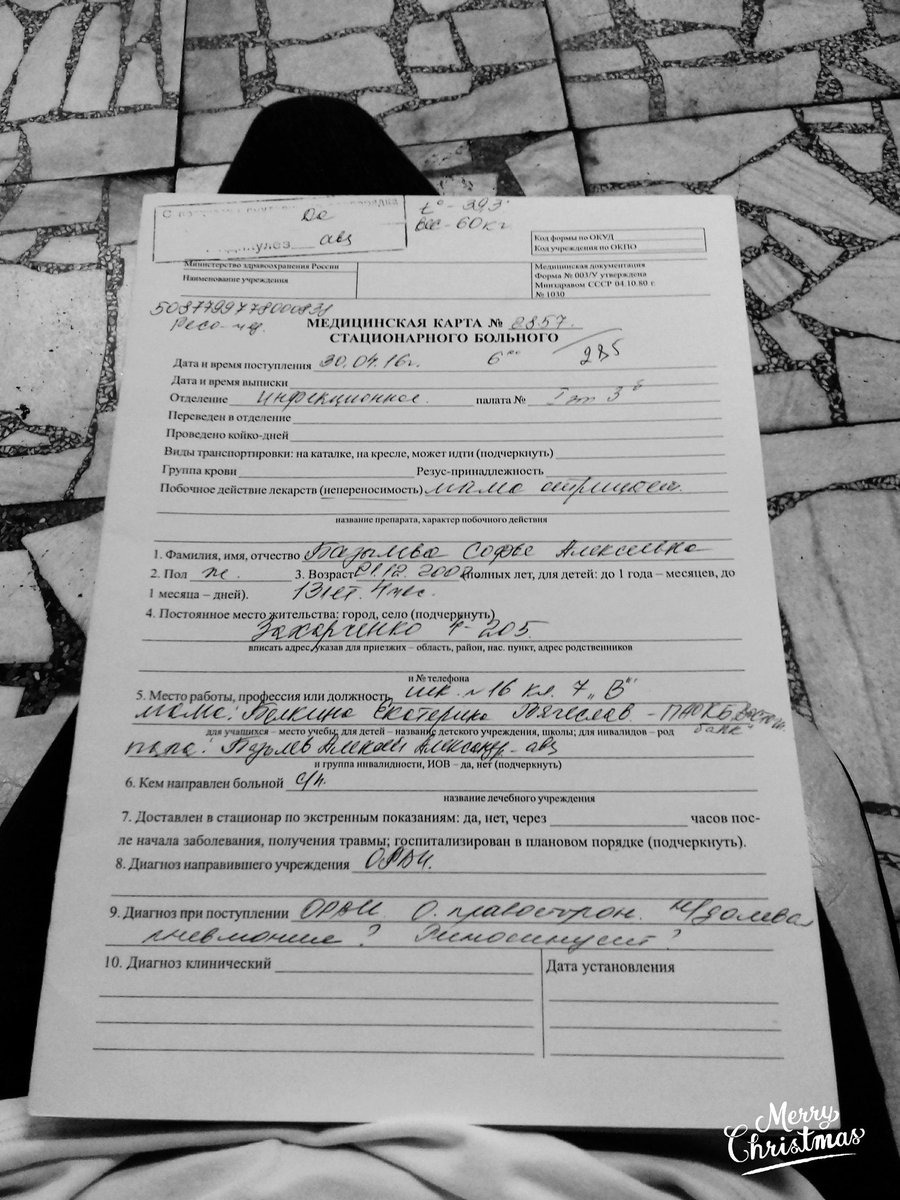 Да
авз
t° - 39,3°
вес - 60 кг
Код формы по ОКУД
Код учреждения по ОКПО
Министерство здравоохранения России
Наименование учреждения
Медицинская документация
Форма № 003/У утверждена
Минздравом СССР 04.10.80 г.
№ 1030
МЕДИЦИНСКАЯ КАРТА № 2857.
СТАЦИОНАРНОГО БОЛЬНОГО
285
Дата и время поступления 30.04.16г. 6
Дата и время выписки
Отделение Инфекционное. палата №
Переведен в отделение
Проведено койко-дней
Виды транспортировки: на каталке, на кресле, может идти (подчеркнуть)
Группа крови Резус-принадлежность
Побочное действие лекарств (непереносимость) мама отрицает.
название препарата, характер побочного действия
1. Фамилия, имя, отчество Софья Алексеевна
2. Пол ж. 3. Возраст (полных лет, для детей: до 1 года – месяцев, до
1 месяца – дней). 13 лет. 4 мес.
4. Постоянное место жительства: город, село (подчеркнуть)
Захарченко 4-205.
вписать адрес, указав для приезжих – область, район, нас. пункт, адрес родственников
и № телефона
5. Место работы, профессия или должность шк. №16 кл. 7 „В"
мама: Белкина Екатерина Вячеслав. - ПАО КБ банк
для учащихся – место учебы; для детей – название детского учреждения, школы; для инвалидов – род
папа: Алексей Александр - авз
и группа инвалидности, ИОВ – да, нет (подчеркнуть)
6. Кем направлен больной с/п.
название лечебного учреждения
7. Доставлен в стационар по экстренным показаниям: да, нет, через часов пос-
ле начала заболевания, получения травмы; госпитализирован в плановом порядке (подчеркнуть).
8. Диагноз направившего учреждения ОРВИ.
9. Диагноз при поступлении ОРВИ. О. правосторон. н/долевая
пневмония? Риносинусит?
10. Диагноз клинический
Дата установления
Merry
Christmas